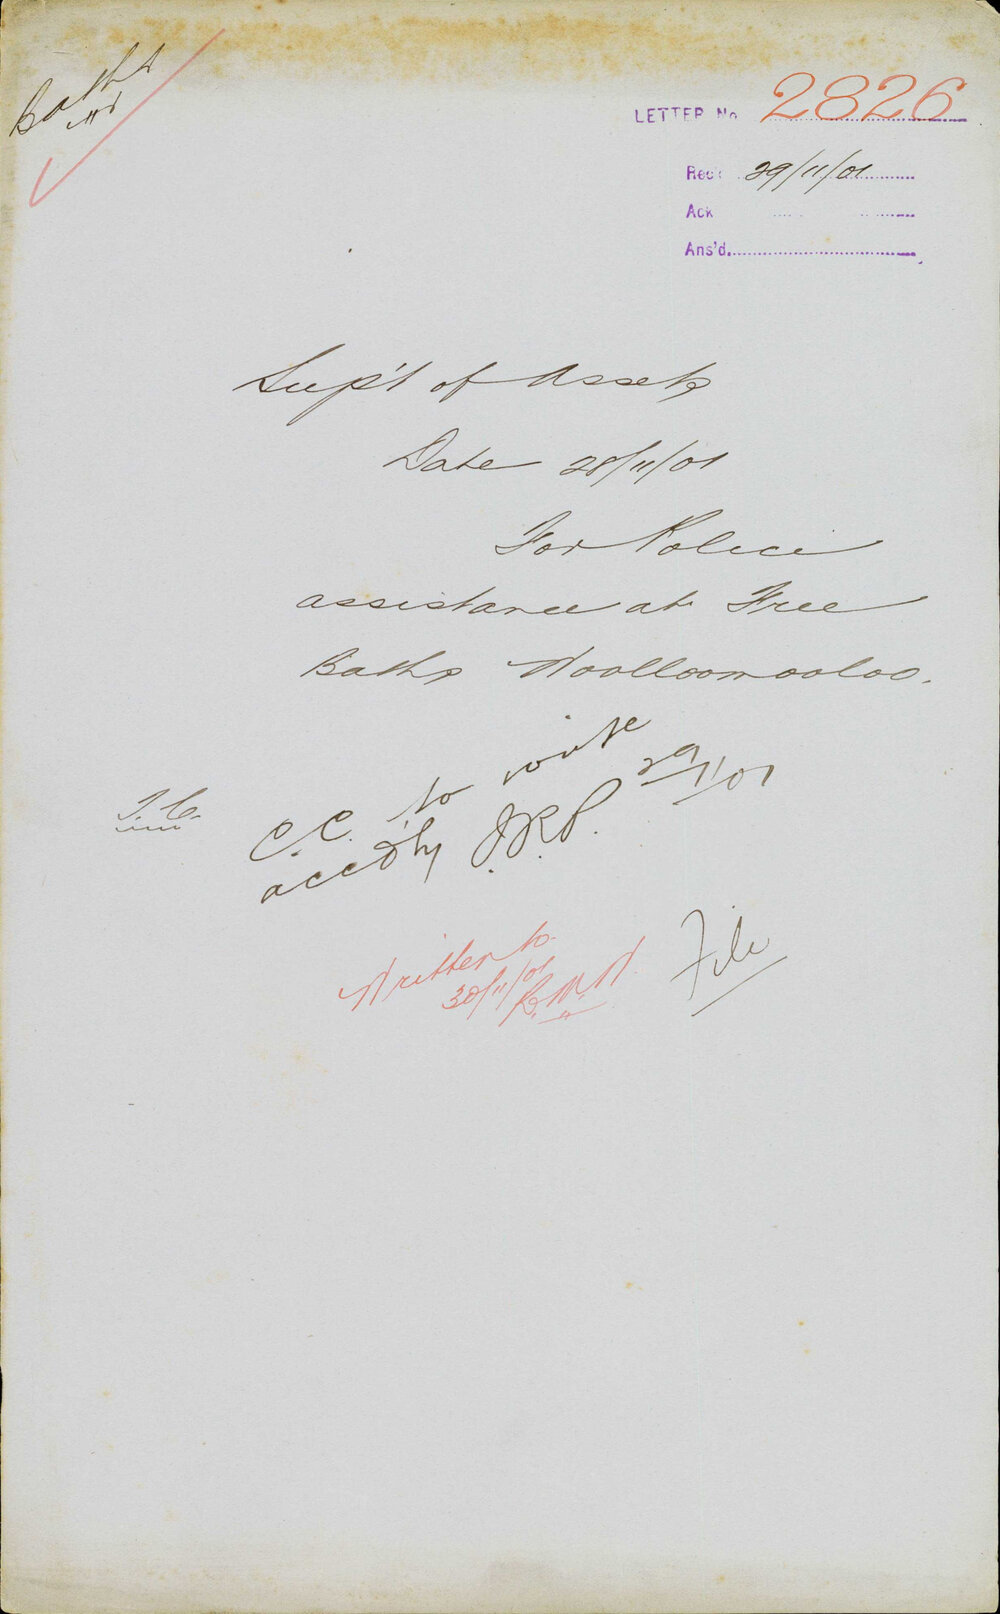 Baths
LETTER No 2826
Rec'd 29/11/01
Ack
Ans'd.
Sup't of Assets
Date 28/11/01
For Police
assistance at Free
Baths Woolloomooloo.
T.C.
C.C. to write
accd'ly J.R.P. 29/11/01
Written to
30/11/01 R.M.W.
File